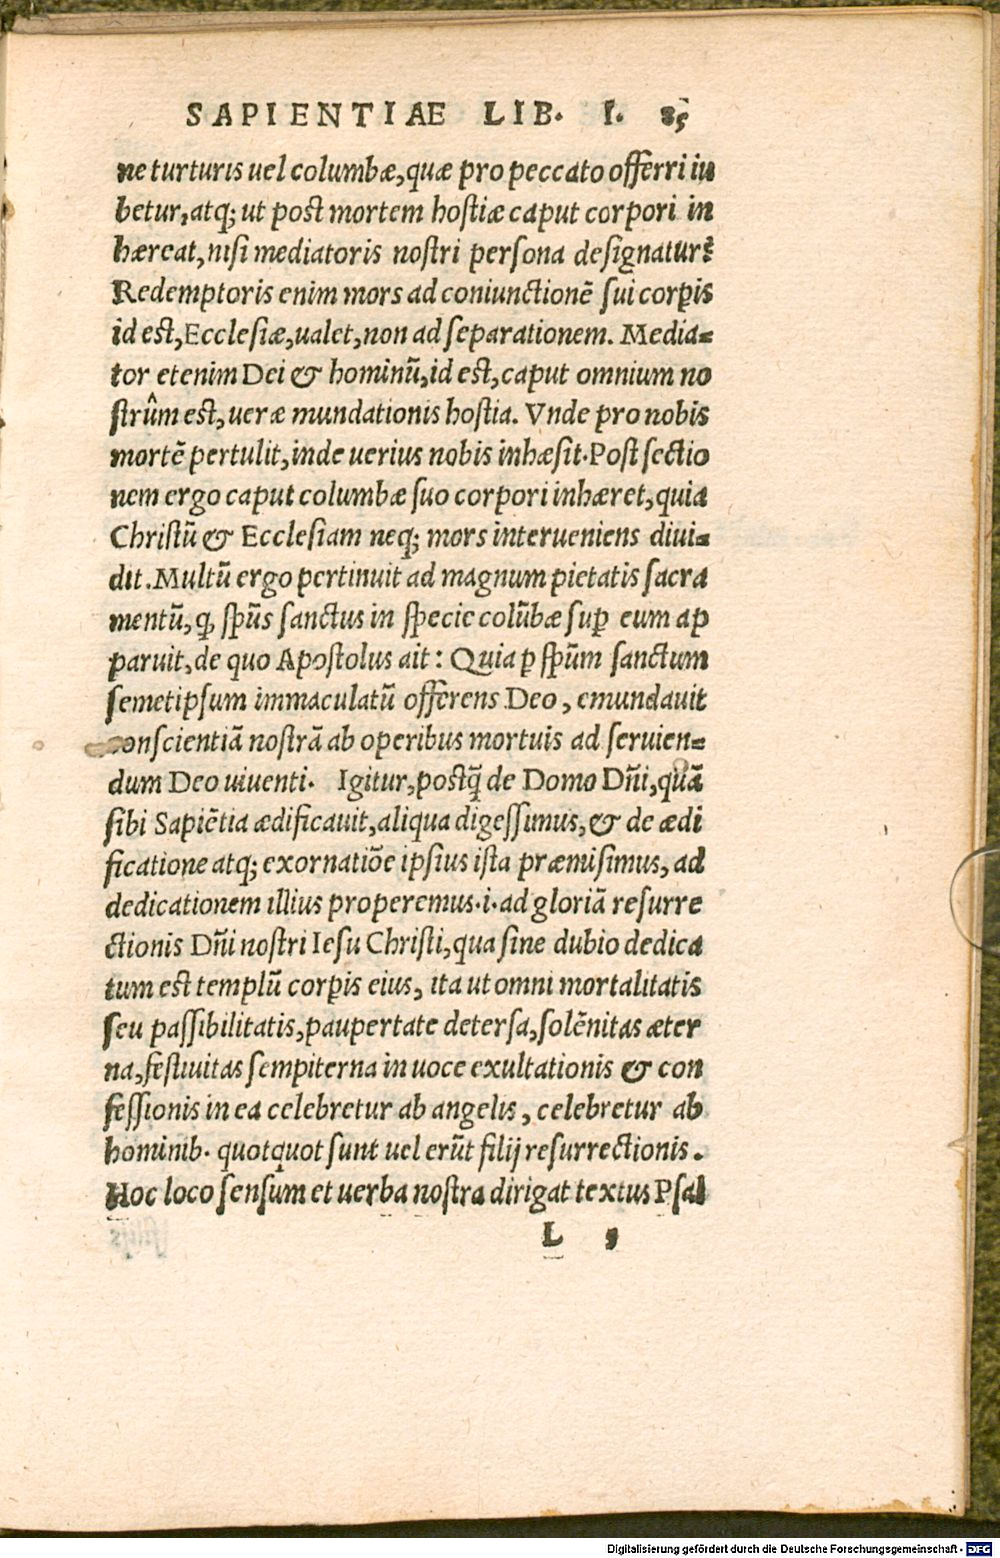 SAPIENTIAE LIB. I. 85
ne turturis uel columbæ, quæ pro peccato offerri iu
betur, atq; ut post mortem hostiæ caput corpori in
hæreat, nisi mediatoris nostri persona designatur?
Redemptoris enim mors ad coniunctionē sui corꝑis
id est, Ecclesiæ, ualet, non ad separationem. Media-
tor etenim Dei & hominū, id est, caput omnium no
strûm est, ueræ mundationis hostia. Vnde pro nobis
mortē pertulit, inde uerius nobis inhæsit. Post sectio
nem ergo caput columbæ suo corpori inhæret, quia
Christū & Ecclesiam neq; mors interueniens diui-
dit. Multū ergo pertinuit ad magnum pietatis sacra
mentū, ꝙ spūs sanctus in specie colūbæ suꝑ eum ap
paruit, de quo Apostolus ait: Quia ꝑ spūm sanctum
semetipsum immaculatū offerens Deo, emundauit
conscientiā nostrā ab operibus mortuis ad seruien-
dum Deo uiuenti. Igitur, postq̃ de Domo Dñi, quā
sibi Sapiētia ædificauit, aliqua digessimus, & de ædi
ficatione atq; exornatiōe ipsius ista præmisimus, ad
dedicationem illius properemus. i. ad gloriā resurre
ctionis Dñi nostri Iesu Christi, qua sine dubio dedica
tum est templū corꝑis eius, ita ut omni mortalitatis
seu passibilitatis, paupertate detersa, solēnitas æter
na, festiuitas sempiterna in uoce exultationis & con
fessionis in ea celebretur ab angelis, celebretur ab
hominib. quotquot sunt uel erūt filij resurrectionis.
Hoc loco sensum et uerba nostra dirigat textus Psal
L 5
Digitalisierung gefördert durch die Deutsche Forschungsgemeinschaft - DFG